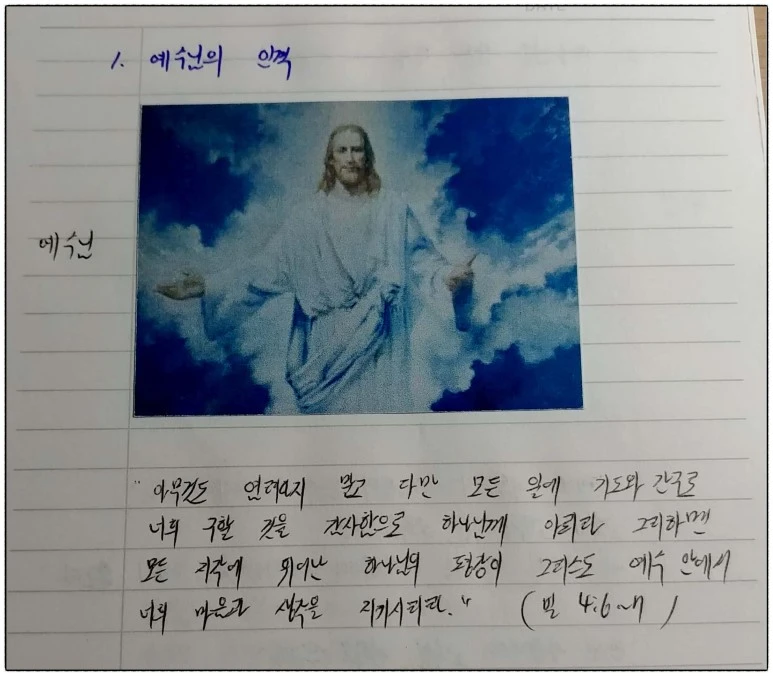 1. 예수님의 인격
예수님
"아무것도 염려하지 말고 다만 모든 일에 기도와 간구로
너희 구할 것을 감사함으로 하나님께 아뢰라 그리하면
모든 지각에 뛰어난 하나님의 평강이 그리스도 예수 안에서
너희 마음과 생각을 지키시리라." (빌 4:6~7)